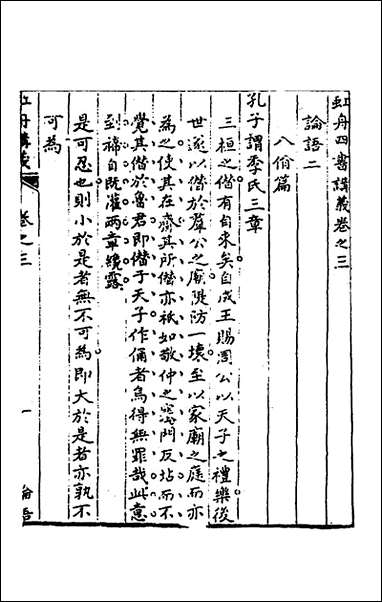 虹舟四書講義卷之三
論語二
八佾篇
孔子謂季氏三章
三桓之僭有自來矣自成王賜周公以天子之禮樂後
世遂以僭於羣公之廟隄防一壞至以家廟之庭而亦
為之使其在齋其所僭亦祇如敬仲之塞門反坫而不
覺其僭於魯君即僭于天子作俑者烏得無罪哉此意
到禘自既灌兩章纔露
是可忍也則小於是者無不可為即大於是者亦孰不
可為
虹舟講義 卷之三 一 論語